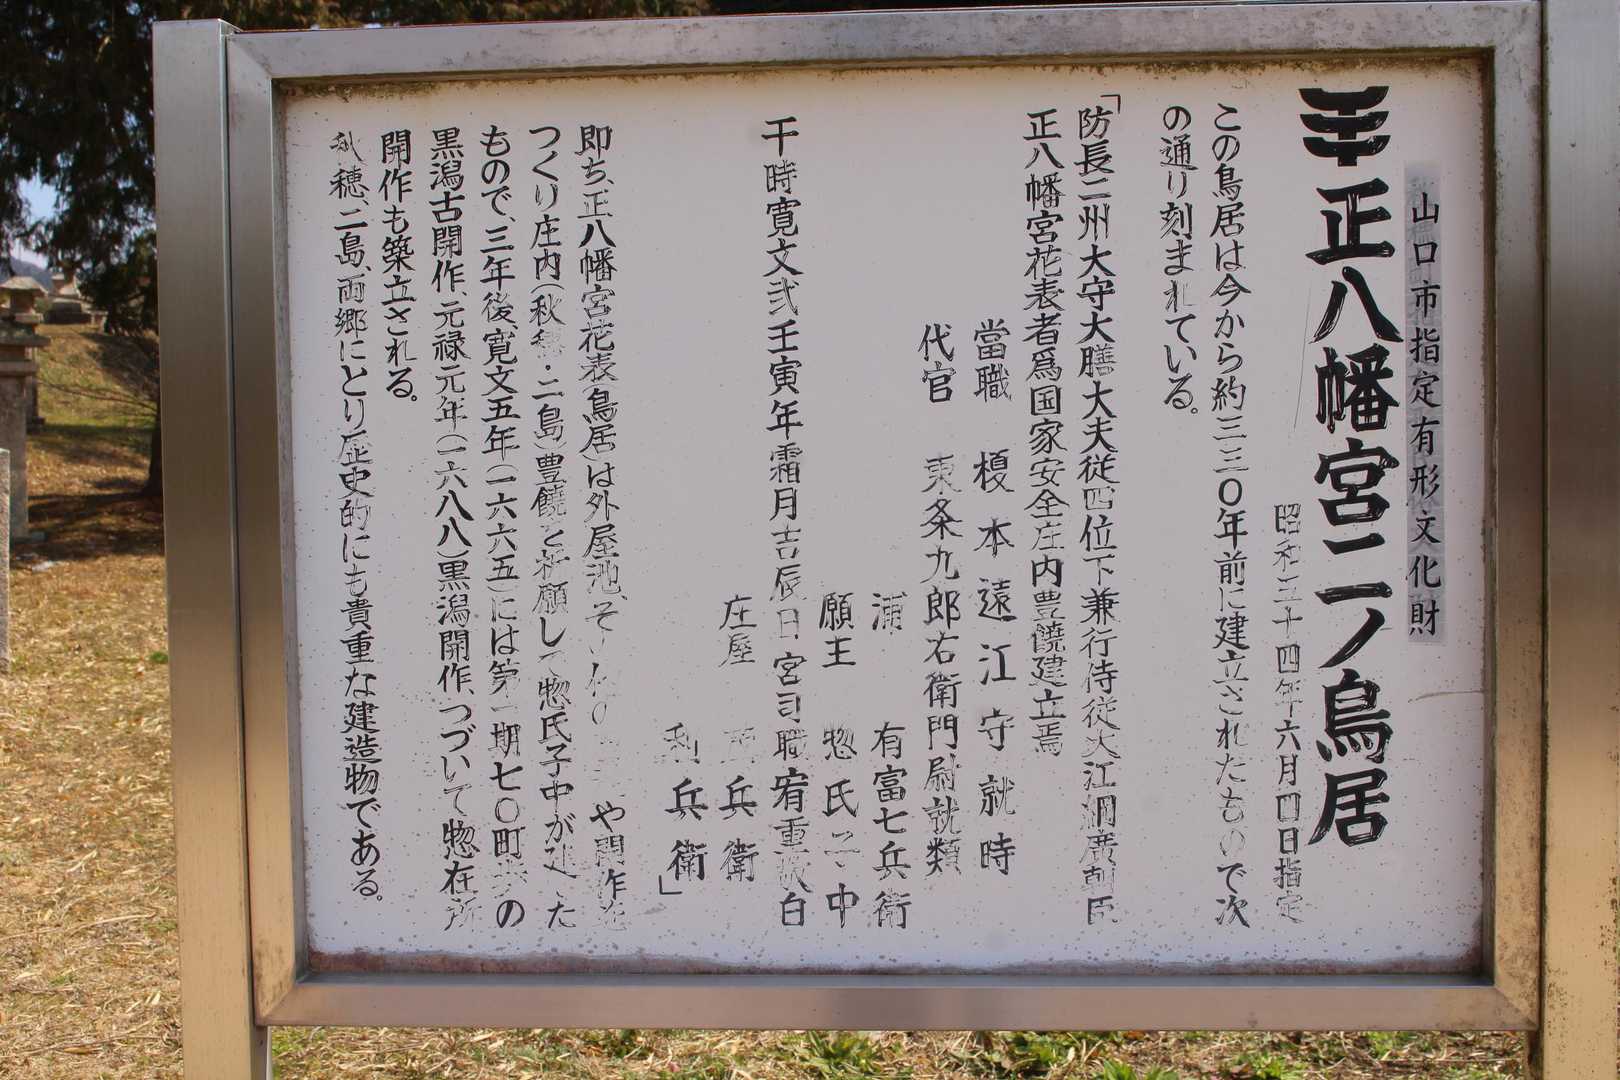 山口市指定有形文化財
正八幡宮二ノ鳥居
昭和五十四年六月四日指定
この鳥居は今から約三三〇年前に建立されたもので次
の通り刻まれている。
「防長二州大守大膳大夫従四位下兼行侍従大江綱廣朝臣
正八幡宮花表者爲国家安全庄内豊饒建立焉
當職 榎本遠江守就時
代官 東条九郎右衛門尉就類
浦 有富七兵衛
願主 惣氏子中
干時寛文弐壬寅年霜月吉辰日宮司職宥重敬白
庄屋 兵衛
利兵衛」
即ち、正八幡宮花表(鳥居)は外屋池、そ の や開作を
つくり庄内(秋穂・二島)豊饒を祈願して惣氏子中が建 た
もので、三年後、寛文五年(一六六五)には第一期七〇町歩の
黒潟古開作、元禄元年(一六八八)黒潟開作、つづいて惣在所
開作も築立される。
秋穂、二島、両郷にとり歴史的にも貴重な建造物である。